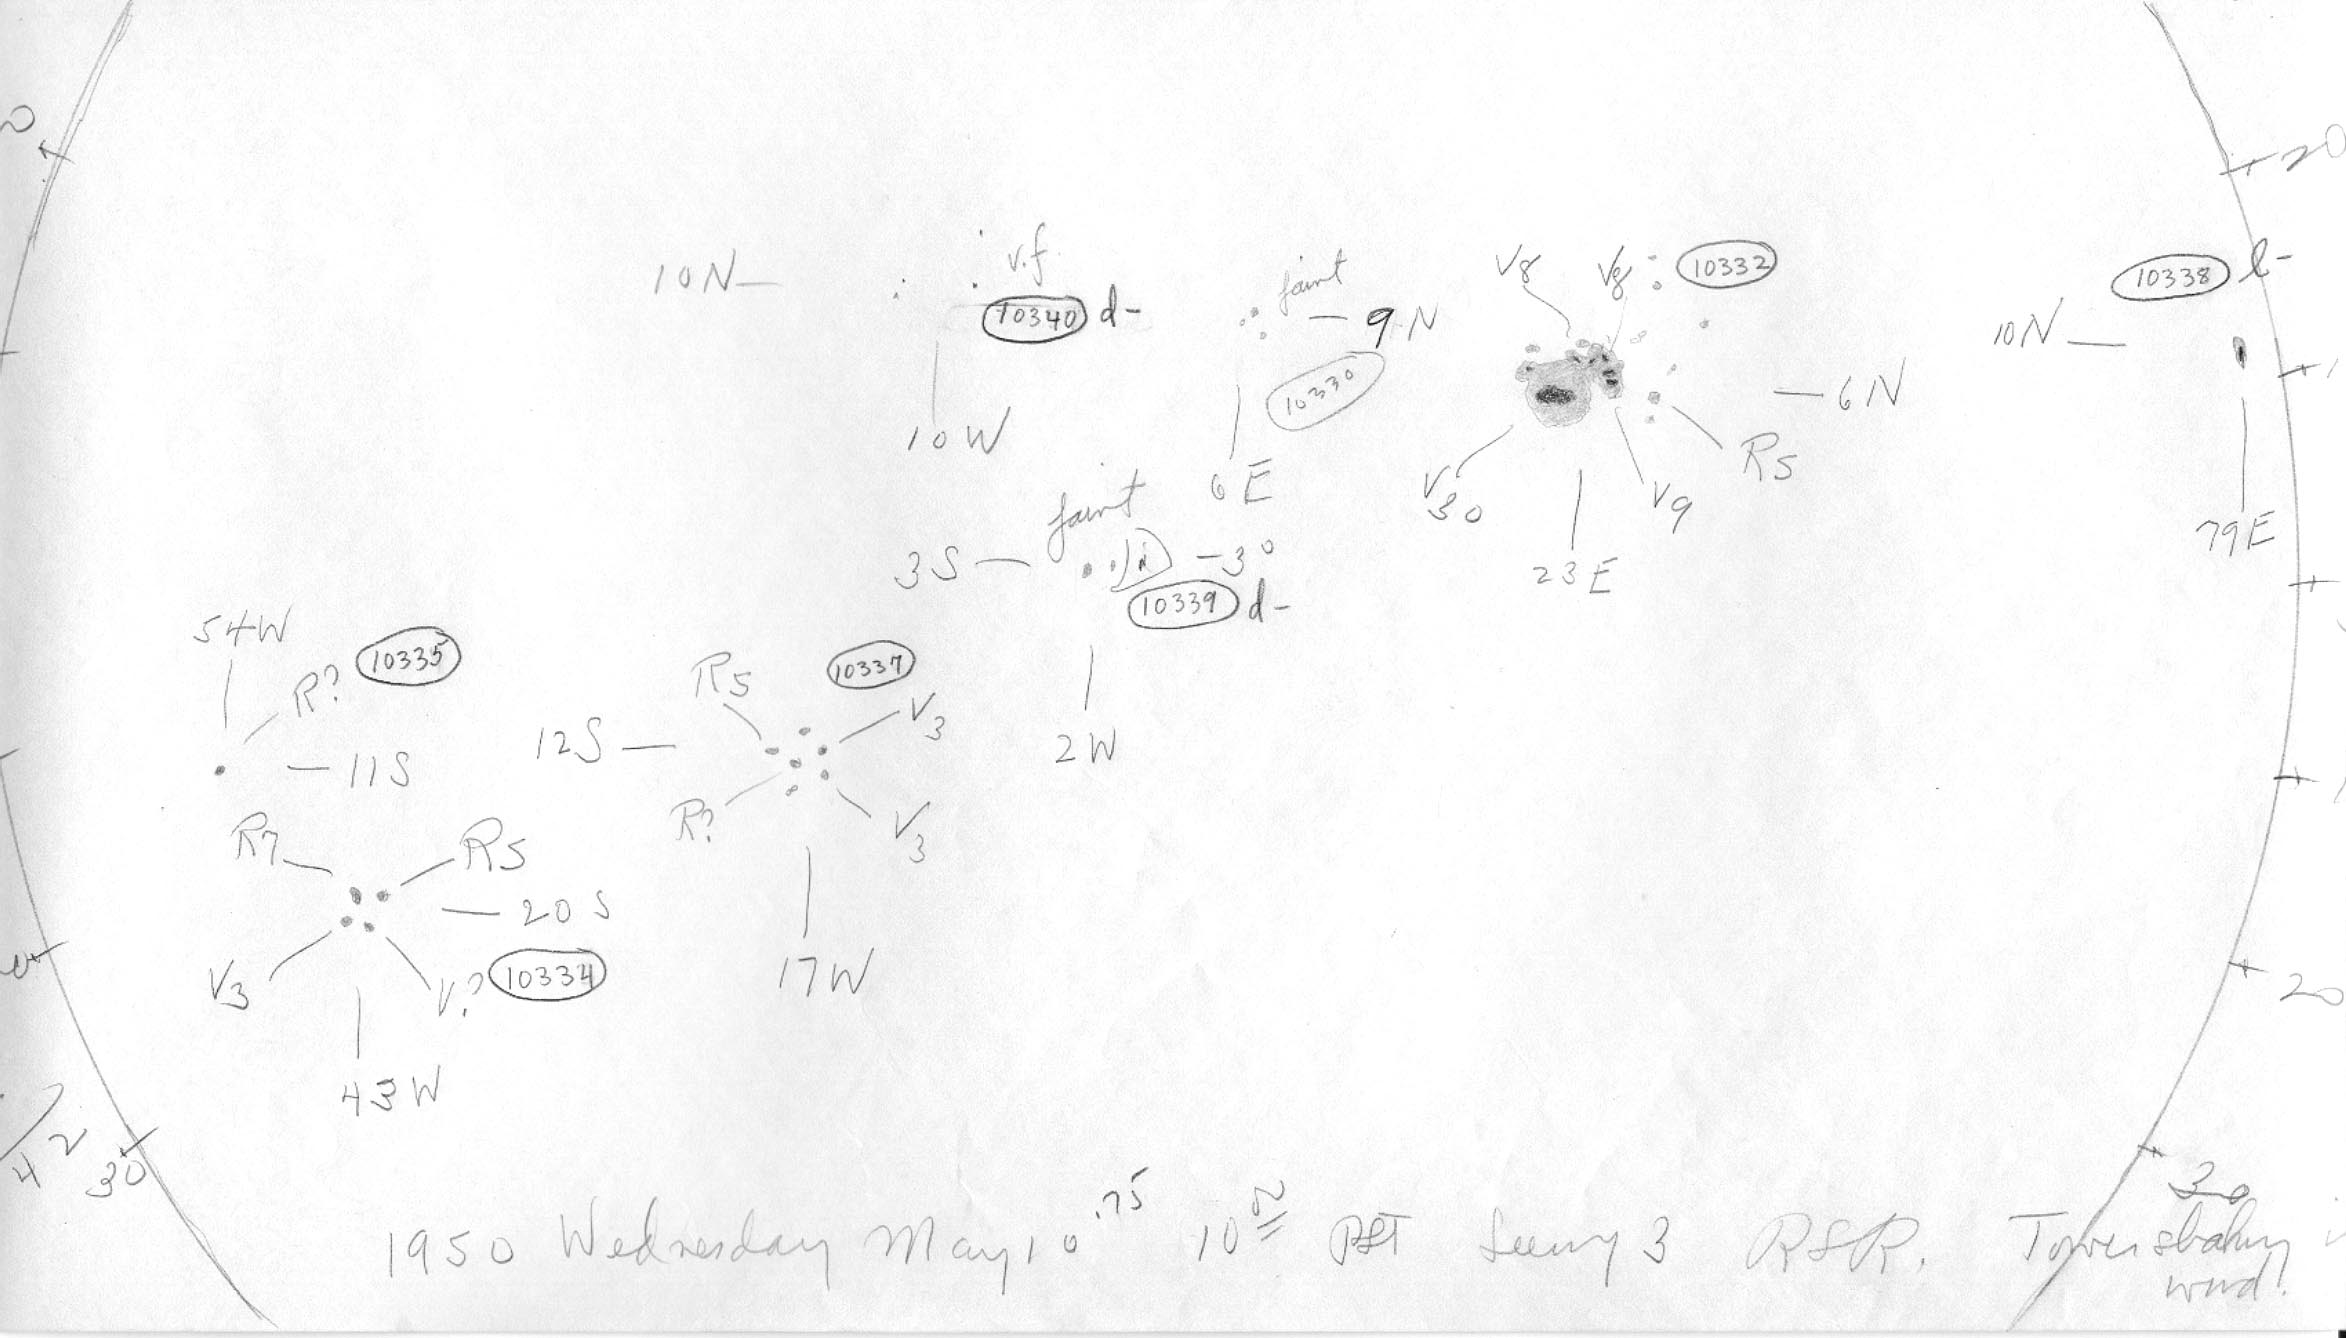 20
10338 l-
10N
79E
v.f.
10N
10340 d-
10W
faint
9N
10330
6E
V8 V8 10332
6N
R5
V30
V9
23E
faint
3S -3°
10339 d-
2W
54W
10335
R?
11S
R5 10337
V3
12S
R?
V3
17W
R7
R5
20S
V3
V? 10334
43W
20
30
30
1950 Wednesday May 10.75 PST Seeing 3 RSR. Tower shaking
wind!